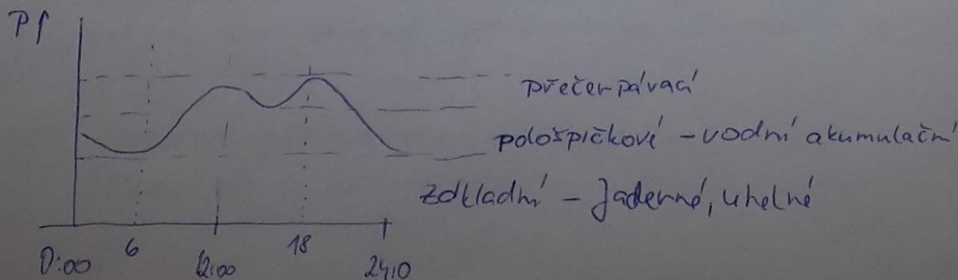 P↑
přečerpávací
pološpičkové - vodní akumulační
základní - Jaderné, uhelné
0:00 6 12:00 18 24:0